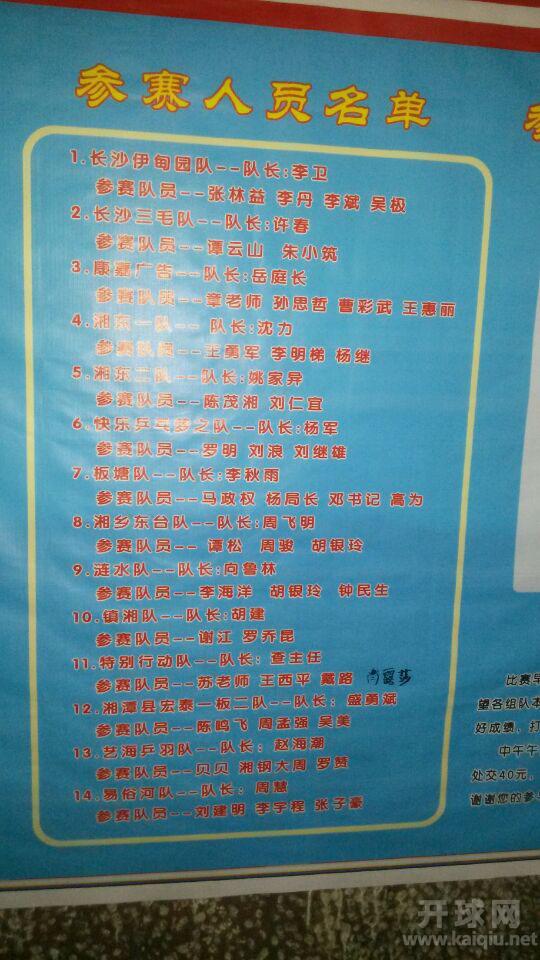 参赛人员名单
1.长沙伊甸园队--队长:李卫
参赛队员--张林益 李丹 李斌 吴极
2.长沙三毛队--队长:许春
参赛队员--谭云山 朱小筑
3.康嘉广告--队长:岳庭长
参赛队员--章老师 孙思哲 曹彩武 王惠丽
4.湘东一队-- 队长:沈力
参赛队员--王勇军 李明梯 杨继
5.湘东二队--队长:姚家异
参赛队员--陈茂湘 刘仁宜
6.快乐乒乓梦之队--队长:杨军
参赛队员--罗明 刘浪 刘继雄
7.板塘队--队长:李秋雨
参赛队员--马政权 杨局长 邓书记 高为
8.湘乡东台队--队长:周飞明
参赛队员-- 谭松 周骏 胡银玲
9.涟水队--队长:向鲁林
参赛队员--李海洋 胡银玲 钟民生
10.镇湘队--队长:胡建
参赛队员--谢江 罗乔昆
11.特别行动队--队长: 查主任
参赛队员--苏老师 王西平 戴路
12.湘潭县宏泰一板二队--队长: 盛勇斌
参赛队员--陈鸣飞 周孟强 吴美
13.艺海乒羽队--队长: 赵海潮
参赛队员--贝贝 湘钢大周 罗赞
14.易俗河队--队长: 周慧
参赛队员--刘建明 李宇程 张子豪
比赛早
望各组队本
好成绩，打
中午午
处交40元，
谢谢您的参与
开球网
www.kaiqiu.net